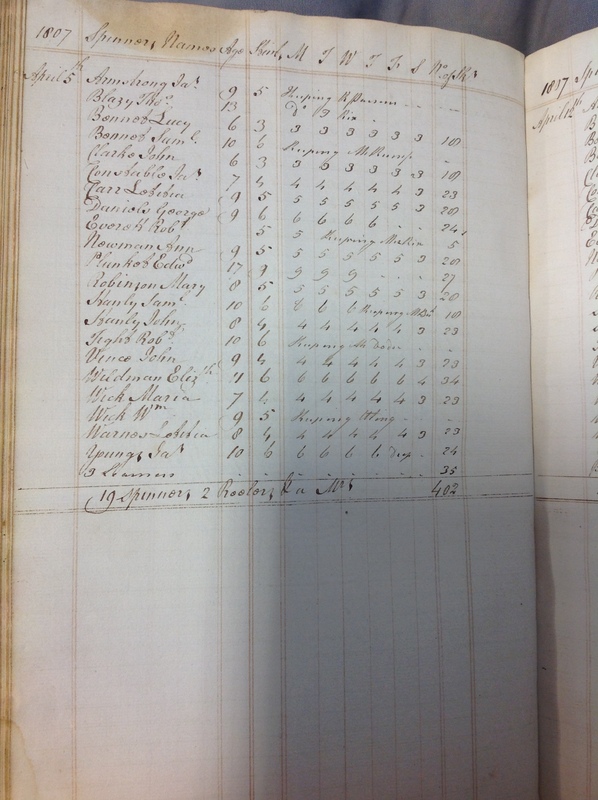 1807 Spinners Names Age Skeins M T W T F S No of Sks
April 5th Armstrong Jas 9 5 Keeping
Blazy Thos 13 Do
Bonnet Lucy 6 3 3 3 3 3 3 3 18
Bonnet Saml 10 6 Keeping
Clarke John 6 3 3 3 3 3 3 3 18
Constable Jas 7 4 4 4 4 4 4 3 23
Carr Letitia 9 5 5 5 5 5 5 3 28
Daniels George 9 6 6 6 6 6 - - 24
Everet Robt 5 5 Keeping 5
Newman Ann 9 5 5 5 5 5 5 3 28
Plunket Edwd 17 9 9 9 9 - - - 27
Robinson Mary 8 5 5 5 5 5 5 3 28
Stanly Saml 10 6 6 6 6 Keeping 18
Stanly John 8 4 4 4 4 4 4 3 23
Tight Robt 10 6 Keeping
Vince John 9 4 4 4 4 4 4 3 23
Wildman Elizth 11 6 6 6 6 6 6 4 34
Wick Maria 7 4 4 4 4 4 4 3 23
Wick Wm 9 5 Keeping
Warnes Letitia 8 4 4 4 4 4 4 3 23
Youngs Jas 10 6 6 6 6 6 - 24
3 Learners 35
19 Spinners 2 Reelers 402